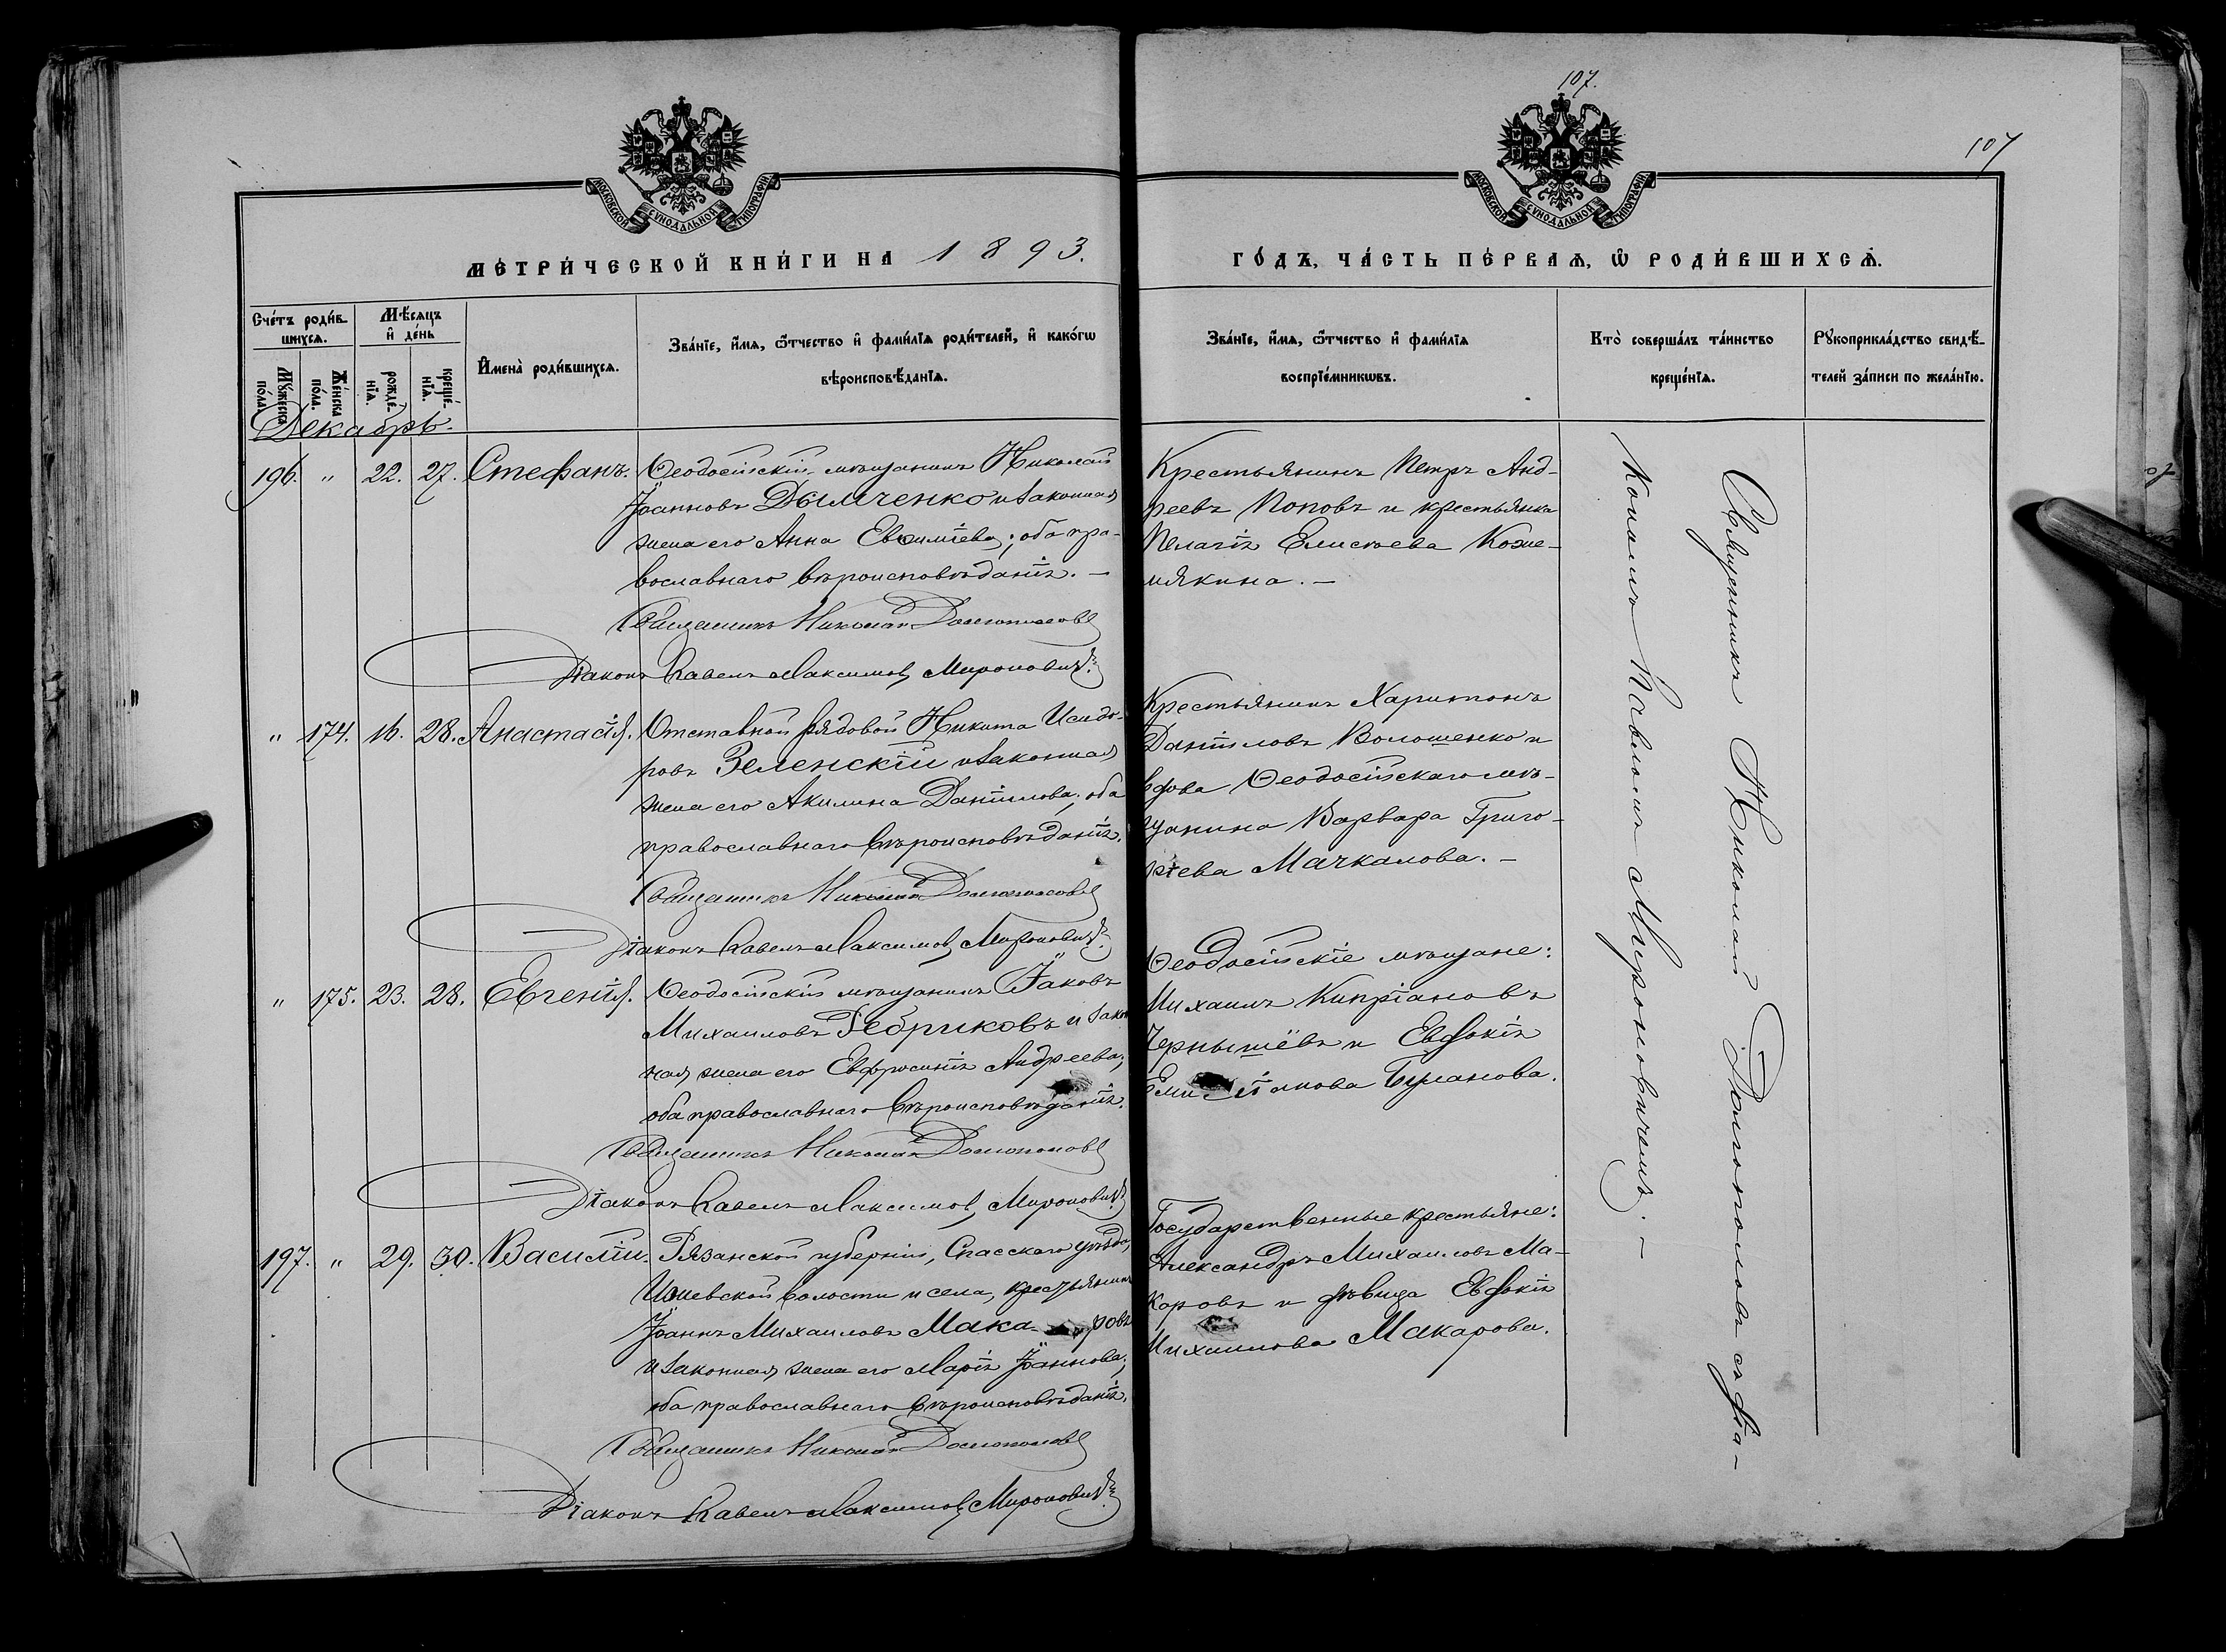 107.
107
МОСКОВСКОЙ СѴНОДАЛЬНОЙ ТИПОГРАФІИ
МОСКОВСКОЙ СѴНОДАЛЬНОЙ ТИПОГРАФІИ
МЕТРИ́ЧЕСКОЙ КНИ́ГИ НА 1893.
ГО́ДЪ, ЧА́СТЬ ПЕ́РВАѦ, Ѡ РОДИ́ВШИХСѦ.
Сче́тъ роди́в-
шихсѧ.
Мѣ́сѧцъ
и҆ де́нь
Мꙋ́жеска
по́ла.
Же́нска
по́ла.
рожде́-
нїѧ.
креще́-
нїѧ.
И҆мена̀ роди́вшихсѧ.
Зва́нїе, и҆́мѧ, ѻ҆́тчество и҆ фами́лїѧ роди́телей, и҆ како́гѡ
вѣроисповѣ́данїѧ.
Зва́нїе, и҆́мѧ, ѻ҆́тчество и҆ фами́лїѧ
воспрїе́мникѡвъ.
Кто̀ соверша́лъ та́инство
креще́нїѧ.
Рꙋкоприкла́дство свидѣ́-
телей за́писи по жела́нїю.
Декабрь.
196. " 22. 27. Стефанъ. Ѳеодосійскій мѣщанинъ Николай
Іоанновъ Дымченко и законная
жена его Анна Евѳиміева; оба пра-
вославнаго вѣроисповѣданія. —
Священникъ Николай Долгополовъ
Діаконъ Павелъ Максимов. Мироновичъ.
Крестьянинъ Петръ Анд-
реевъ Поповъ и крестьянка
Пелагія Елисѣева Коже-
мякина. —
" 174. 16. 28. Анастасія. Отставной рядовой Никита Исидо-
ровъ Зеленскій и законная
жена его Акилина Даніилова; оба
православнаго вѣроисповѣданія.
Священникъ Николай Долгополовъ
Діаконъ Павелъ Максимов. Мироновичъ.
Крестьянинъ Харитонъ
Даніиловъ Волошенко и
вдова Ѳеодосійскаго мѣ-
щанина Варвара Григо-
рьева Мачкалова. —
" 175. 23. 28. Евгенія. Ѳеодосійскій мѣщанинъ Іаковъ
Михаиловъ Ребриковъ и закон
ная жена его Евфросинія Андреева;
оба православнаго вѣроисповѣданія.
Священникъ Николай Долгополовъ
Діаконъ Павелъ Максимов. Мироновичъ.
Ѳеодосійскіе мѣщане:
Михаилъ Кипріановъ
Чернышёвъ и Евдокія
Буланова.
197. " 29. 30. Василій. Рязанской губерніи, Спасскаго уѣзда,
Ижевской волости и села, крестьянинъ
Іоаннъ Михаиловъ Макаровъ
и законная жена его Марія Іоаннова;
оба православнаго вѣроисповѣданія.
Священникъ Николай Долгополовъ
Діаконъ Павелъ Максимов. Мироновичъ.
Государственные крестьяне:
Александръ Михаиловъ Ма-
каровъ и дѣвица Евдокія
Михаилова Макарова.
Священникъ Николай Долгополовъ съ діа-
кономъ Павломъ Мироновичемъ. —